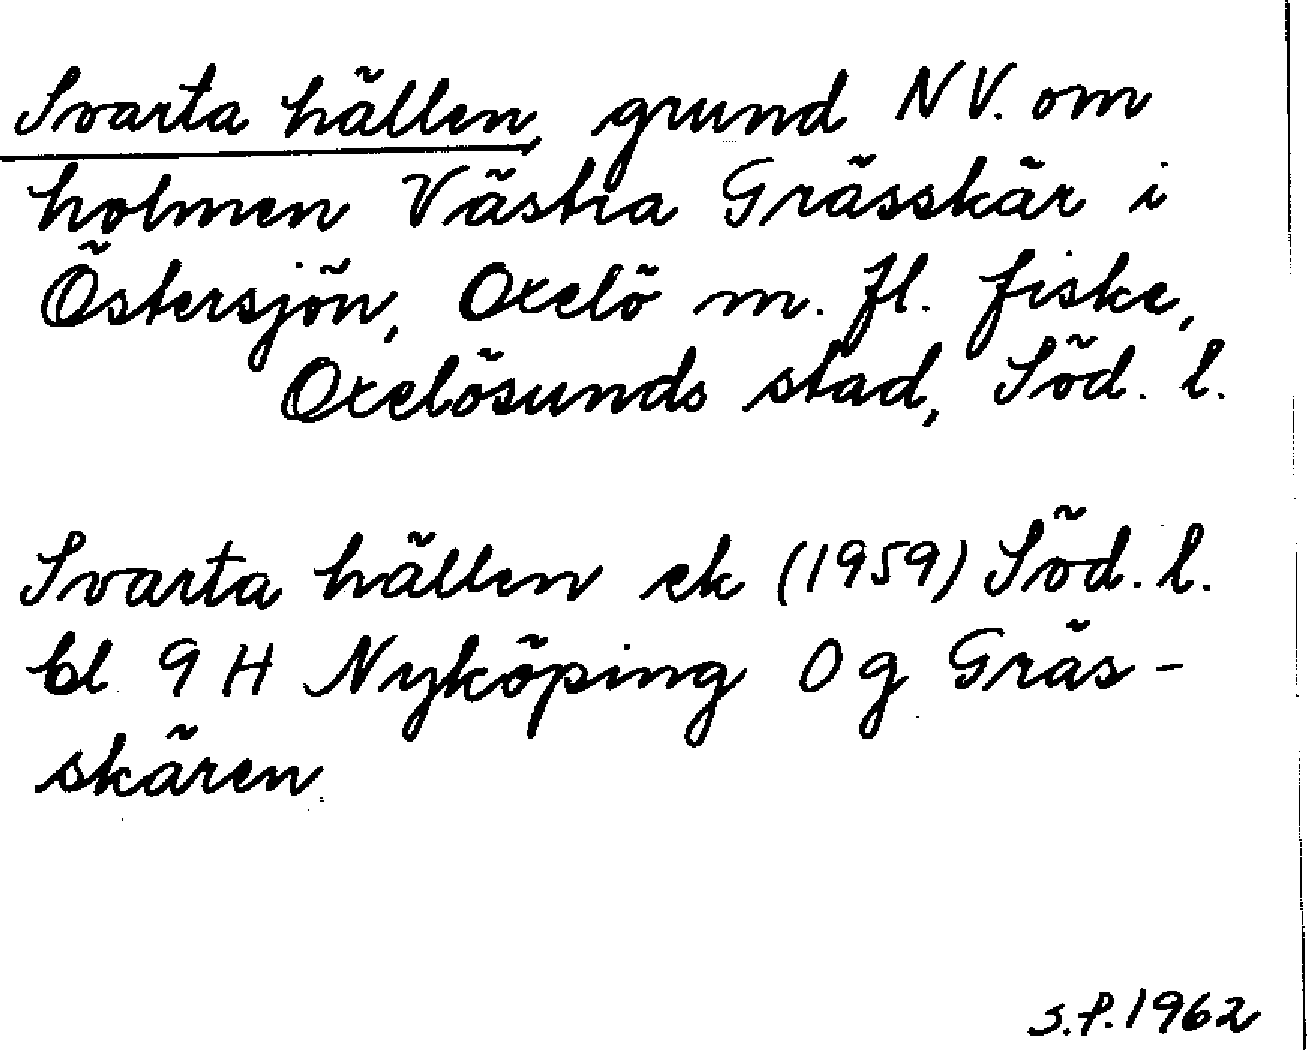 Svarta hällen, grund NV. om
holmen Västra Grässkär i
Östersjön, Oxelö m. fl. fiske,
Oxelösunds stad, Söd. l.
Svarta hällen ek (1959) Söd. l.
bl 9 H Nyköping 0 g Gräs-
skären
S.P. 1962